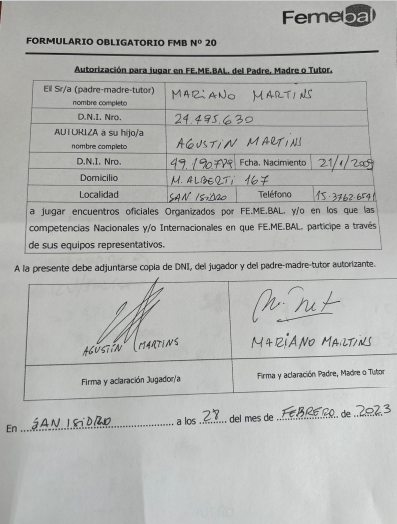 Femebal
FORMULARIO OBLIGATORIO FMB Nº 20
Autorización para jugar en FE.ME.BAL. del Padre, Madre o Tutor.
El Sr/a (padre-madre-tutor) nombre completo MARIANO MARTINS
D.N.I. Nro. 24.495.630
AUTORIZA a su hijo/a nombre completo AGUSTIN MARTINS
D.N.I. Nro. 49.190779 Fcha. Nacimiento 21/1/2009
Domicilio M. ALBERTI 167
Localidad SAN ISIDRO Teléfono 15.3762.6541
a jugar encuentros oficiales Organizados por FE.ME.BAL. y/o en los que las
competencias Nacionales y/o Internacionales en que FE.ME.BAL. participe a través
de sus equipos representativos.
A la presente debe adjuntarse copia de DNI, del jugador y del padre-madre-tutor autorizante.
AGUSTIN MARTINS
MARIANO MARTINS
Firma y aclaración Jugador/a
Firma y aclaración Padre, Madre o Tutor
En SAN ISIDRO a los 28 del mes de FEBRERO de 2023